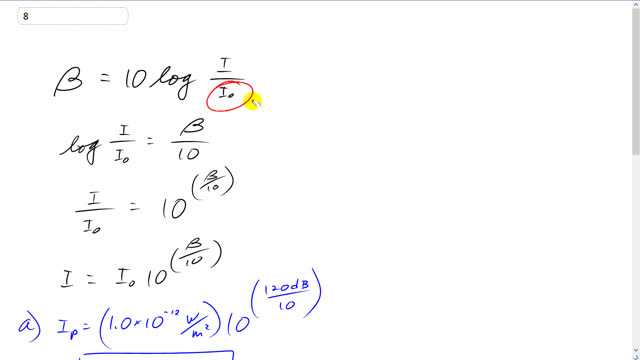 8
β = 10 log I/I₀
log I/I₀ = β/10
I/I₀ = 10^(β/10)
I = I₀ 10^(β/10)
a) I_p = (1.0 × 10⁻¹² W/m²) 10^(120dB/10)